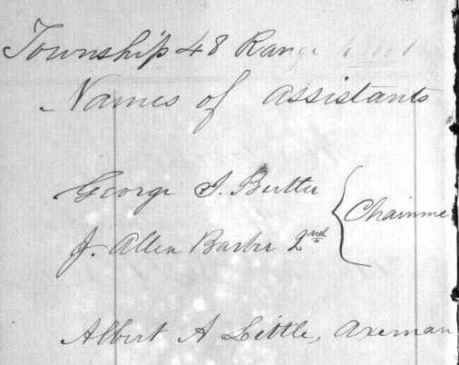 Township 48 Range
Names of assistants
George S. Butler
J. Allen Barber 2nd
Chainme
Albert A Little, Axeman